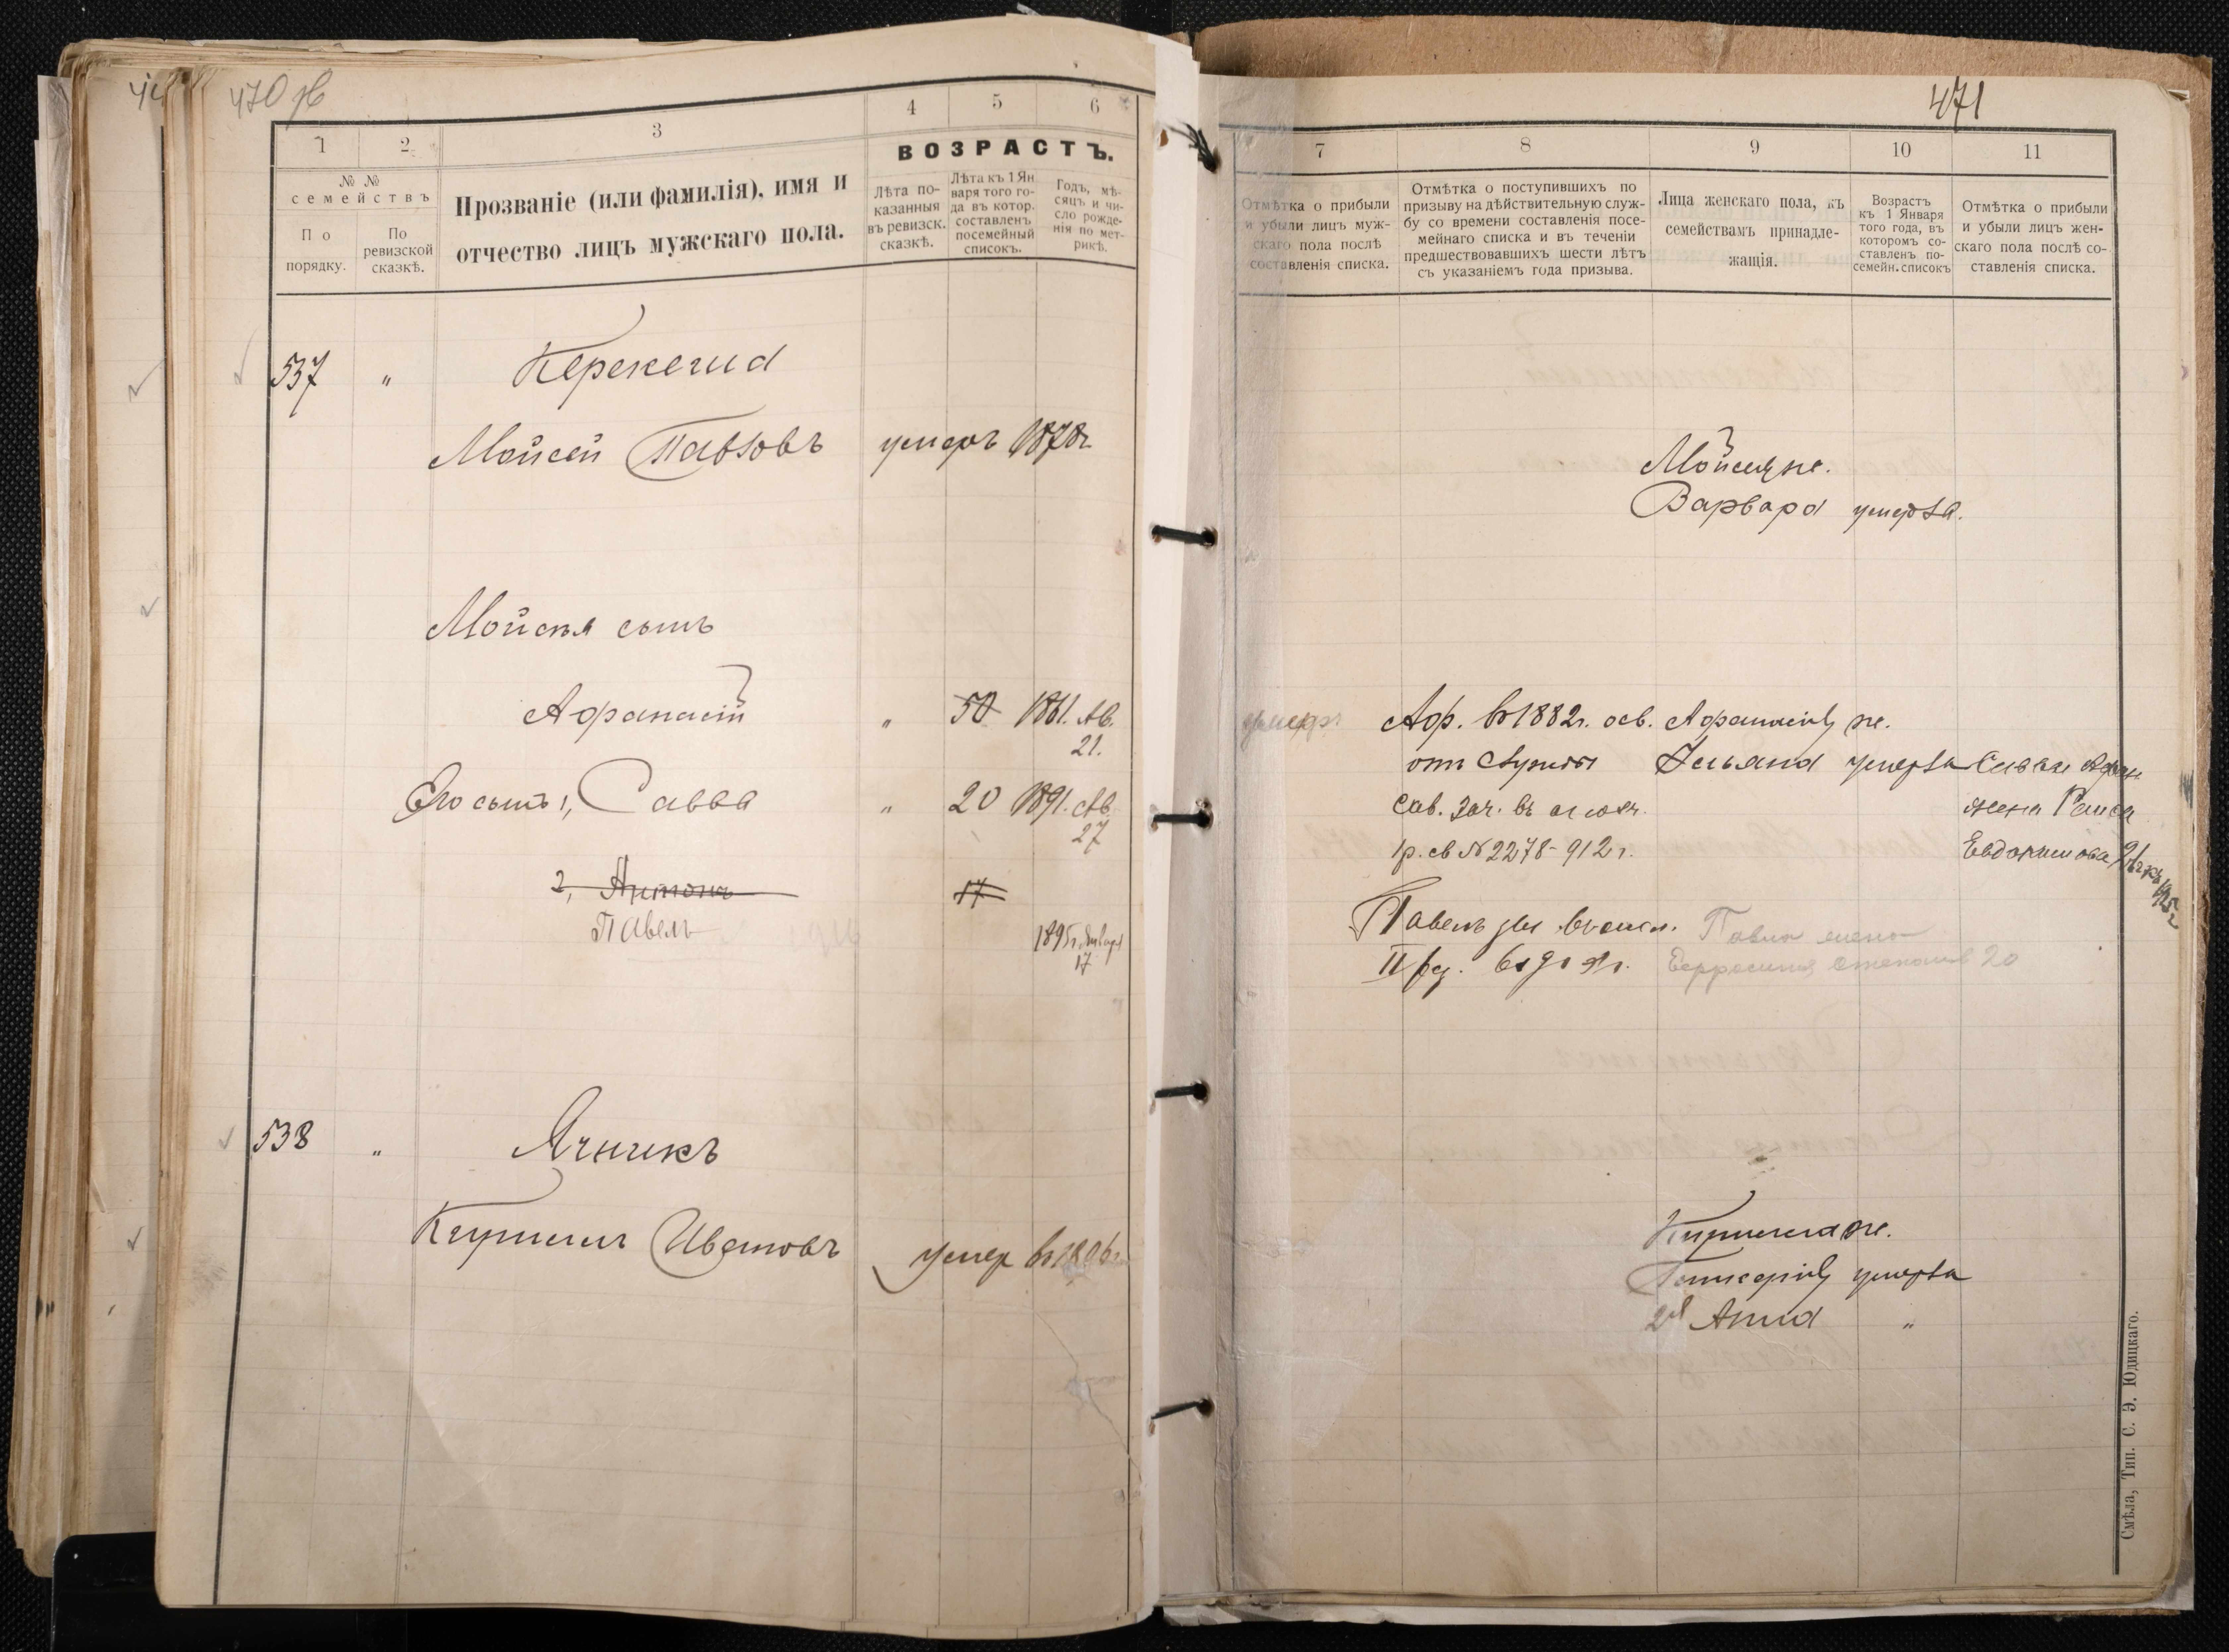 470 зв
1
2
3
4
5
6
№ №
семействъ
По
порядку.
По
ревизской
сказкѣ.
Прозваніе (или фамилія), имя и
отчество лицъ мужскаго пола.
ВОЗРАСТЪ.
Лѣта по-
казанныя
въ ревизск.
сказкѣ.
Лѣта къ 1 Ян
варя того го-
да въ котор.
составленъ
посемейный
списокъ.
Годъ, мѣ-
сяцъ и чи-
сло рожде-
нія по мет-
рикѣ.
537 "
Мойсей Павловъ умеръ 1878г
Мойсея сынъ
Афанасій " 50 1861. Ав.
21.
Его сынъ 1, Савва " 20 1891. Ав.
27
2, Антонъ 17
Павелъ 1895г. Января
17
538 " Ячникъ
Кирилъ Ивановъ умер
471
7
8
9
10
11
Отмѣтка о прибыли
и убыли лицъ муж-
скаго пола послѣ
составленія списка.
Отмѣтка о поступившихъ по
призыву на дѣйствительную служ-
бу со времени составленія посе-
мейнаго списка и въ теченіи
предшествовавшихъ шести лѣтъ
съ указаніемъ года призыва.
Лица женскаго пола, къ
семействамъ принадле-
жащія.
Возрастъ
къ 1 Января
того года, въ
которомъ со-
ставленъ по-
семейн. списокъ
Отмѣтка о прибыли
и убыли лицъ жен-
скаго пола послѣ со-
ставленія списка.
Мойсея же.
Варвара умерла.
умеръ Аф. въ 1882г. осв. Афанасія же.
от службы Ульяна умерла Саввы Афан
Сав. зач. въ жена Раиса
р. св № 2278-912 г. Евдокимова
Павелъ
Павла жена
II рз. 20
Кирилла же.
Гликерія умерла
2я Анна "
Смѣла, Тип. С. Э. Юдицкаго.